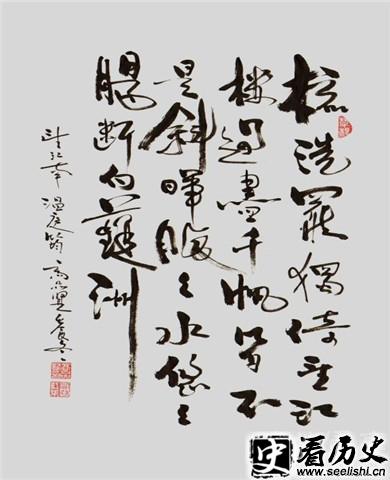 梳洗罷獨倚望江
樓過盡千帆皆不
是斜暉脈〻水悠〻
腸斷白蘋洲
望江南 温庭筠
史 看历史
www.seelishi.cn